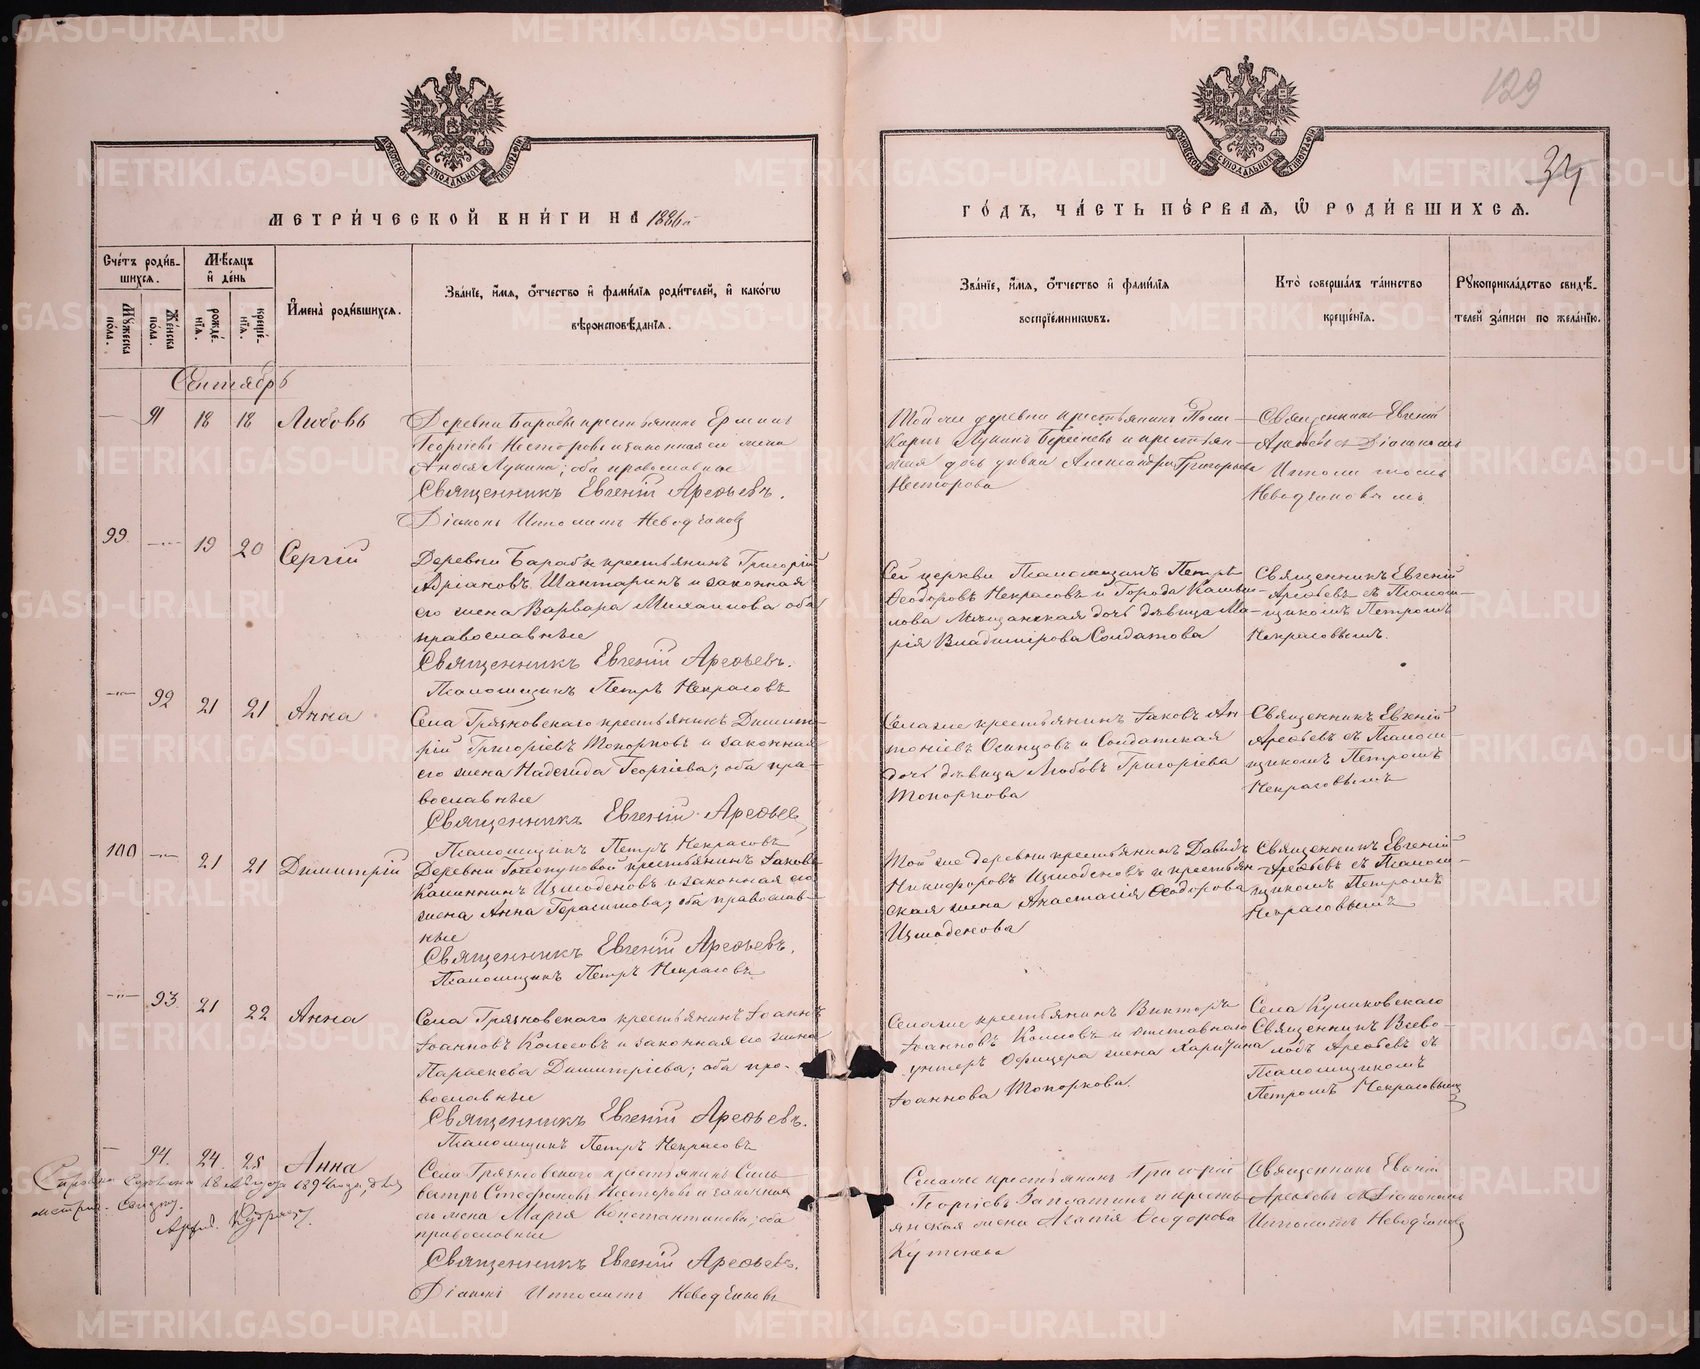 129
34
МЕТРИ́ЧЕСКОЙ КНИ́ГИ НА 1886й
ГО́ДЪ, ЧА́СТЬ ПЕ́РВАЯ, Ѡ РОДИ́ВШИХСЯ.
Сче́тъ роди́в-
шихся.
Му́жеска по́ла.
Же́нска по́ла.
Мѣ́сяцъ и де́нь
рожде́нїя.
креще́нїя.
Имена̀ роди́вшихся.
Зва́нїе, и́мя, о́тчество и фами́лїя роди́телей, и како́гѡ
вѣроисповѣ́данїя.
Зва́нїе, и́мя, о́тчество и фами́лїя
воспрїе́мниковъ.
Кто̀ соверша́лъ та́инство
креще́нїя.
Рукоприкла́дство свидѣ́-
телей за́писи по жела́нїю.
Сентябрь
91 18 18 Любовь
Деревни Барабы крестьянинъ
Георгіевъ Несторовъ и законная его жена
Лукина; оба православные
Священникъ Евгеній Арефьевъ.
Діаконъ Ипполитъ
Той же деревни крестьянинъ Поли-
карпъ Лукинъ и крестьян-
ская дочь девица Александра Григорьева
Несторова
Священникъ Евгеній
Арефьевъ съ Діакономъ
Ипполитомъ
99 19 20 Сергій
Деревни Барабы крестьянинъ Григорій
Адріановъ Шантаринъ и законная
его жена Варвара Михаилова оба
православные
Священникъ Евгеній Арефьевъ.
Псаломщикъ Петръ Некрасовъ
Сей церкви Псаломщикъ Петръ
Ѳеодоровъ Некрасовъ и Города Камыш-
лова Мѣщанская дочь дѣвица Ма-
рія Владимірова Солдатова
Священникъ Евгеній
Арефьевъ съ Псалом-
щикомъ Петромъ
Некрасовымъ.
92 21 21 Анна
Села Грязновскаго крестьянинъ Димит-
рій Григоріевъ Топорковъ и законная
его жена Надежда Георгіева; оба пра-
вославные
Священникъ Евгеній Арефьевъ
Псаломщикъ Петръ Некрасовъ
Селаже крестьянинъ Іаковъ Ан-
тоніевъ Осинцовъ и Солдатская
дочь дѣвица Любовь Григоріева
Топоркова
Священникъ Евгеній
Арефьевъ съ Псалом-
щикомъ Петромъ
Некрасовымъ
100 21 21 Димитрій
Деревни крестьянинъ Іаковъ
Каллиникъ Измоденовъ и законная его
жена Анна Герасимова; оба православ-
ные
Священникъ Евгеній Арефьевъ.
Псаломщикъ Петръ Некрасовъ
Той же деревни крестьянинъ Давидъ
Никифоровъ Измоденовъ и крестьян-
ская жена Анастасія Ѳеодорова
Измоденова
Священникъ Евгеній
Арефьевъ съ Псалом-
щикомъ Петромъ
Некрасовымъ
93. 21 22 Анна
Села Грязновскаго крестьянинъ Іоаннъ
Іоанновъ Колесовъ и законная его жена
Параскева Димитріева; оба пра-
вославные
Священникъ Евгеній Арефьевъ.
Псаломщикъ Петръ Некрасовъ
Селаже крестьянинъ Викторъ
Іоанновъ и отставнаго
унтеръ Офицера жена Харитина
Іоаннова Топоркова.
Села Куликовскаго
Священникъ Всево-
лодъ Арефьевъ съ
Псаломщикомъ
Петромъ Некрасовымъ
94. 24. 25 Анна
Села Грязновскаго крестьянинъ Силь-
вестръ Стефановъ Несторовъ и законная
его жена Марія Константинова; оба
православные
Священникъ Евгеній Арефьевъ.
Діаконъ Ипполитъ
Селаже крестьянинъ Григорій
Георгіевъ и кресть-
янская жена Агапія Ѳеодорова
Священникъ Евгеній
Арефьевъ съ Діакономъ
Ипполитомъ
18 1894 года
METRIKI.GASO-URAL.RU